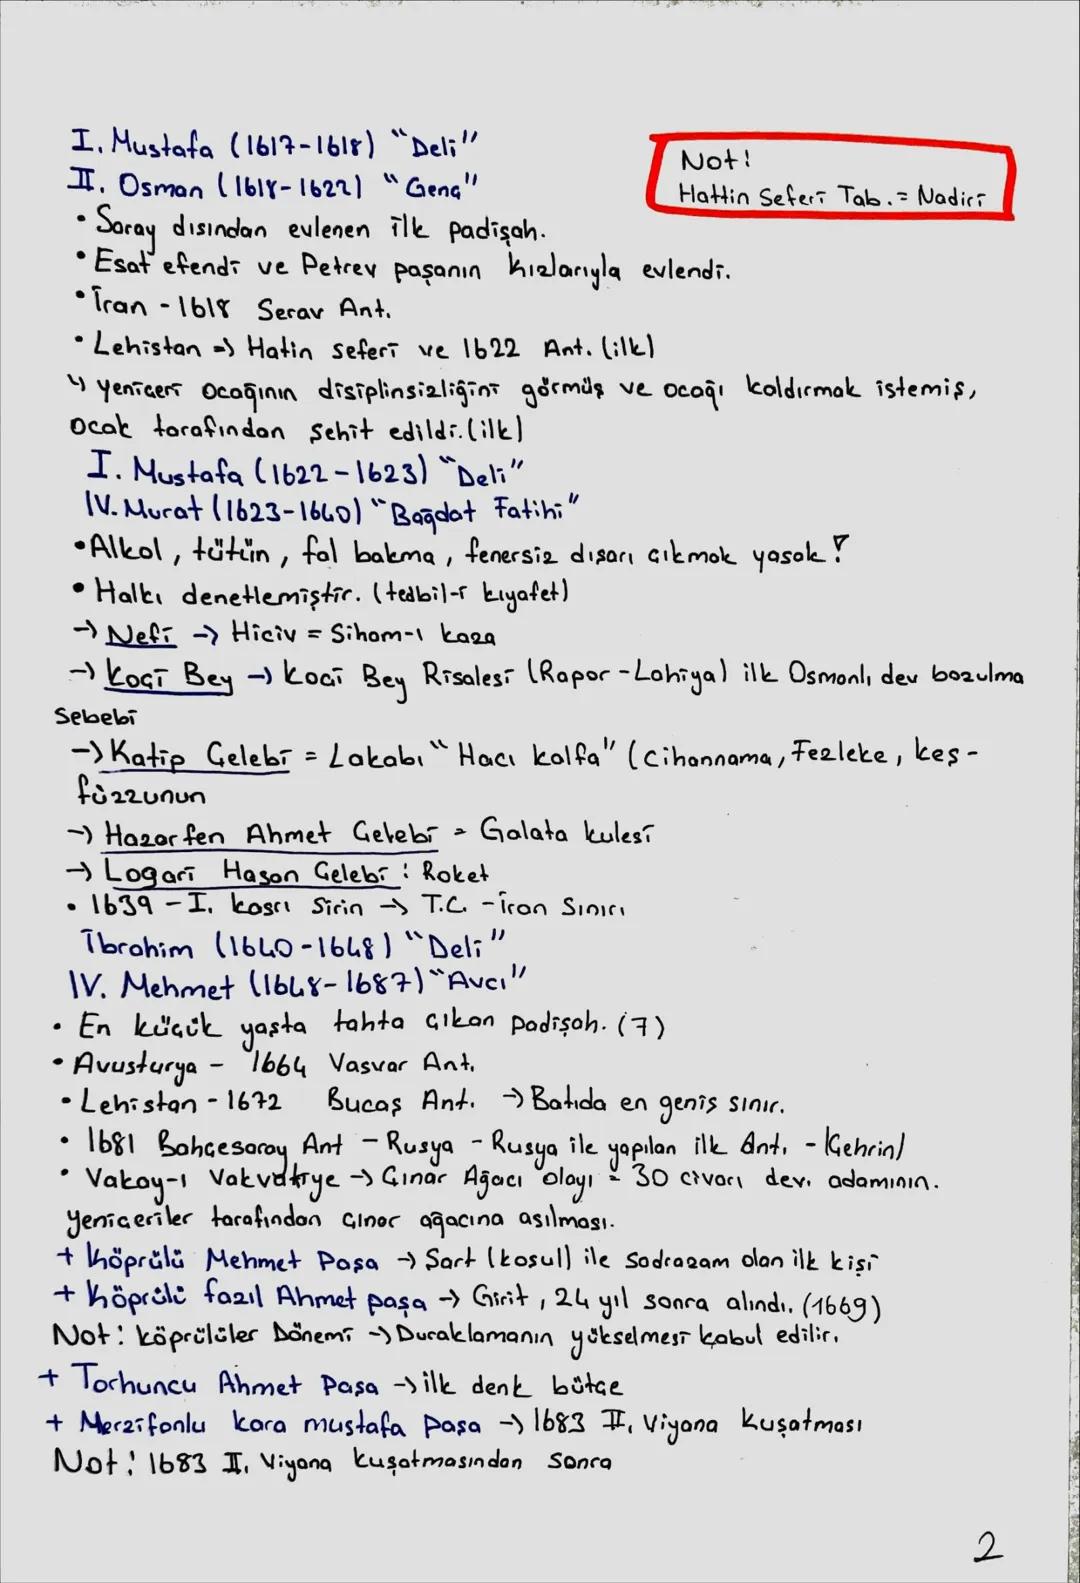 I. Mustafa (1617-1618) "Deli"
II. Osman (1618-1622) "Genç"
Not!
Hattin Seferi Tab. = Nadiri
• Saray dısından evlenen ilk padişah.
• Esat efendi ve Petrev paşanın kızlarıyla evlendi.
• İran - 1618 Serav Ant.
• Lehistan => Hatin seferi ve 1622 Ant. (ilk)
↳ yeniçeri ocağının disiplinsizliğini görmüş ve ocağı kaldırmak istemiş,
ocak tarafından şehit edildi. (ilk)
I. Mustafa (1622-1623) "Deli"
IV. Murat (1623-1640) "Bağdat Fatihi"
• Alkol, tütün, fal bakma, fenersiz dışarı çıkmak yasak!
• Halkı denetlemiştir. (tedbil-i kıyafet)
→ Nefi → Hiciv = Siham-ı kaza
→ Koçi Bey → Koçi Bey Risalesi (Rapor-Lahiya) ilk Osmanlı dev bozulma
Sebebi
→ Katip Çelebi = Lakabı "Hacı kalfa" (Cihannama, Fezleke, keş-
füzzunun
→ Hazarfen Ahmet Çelebi = Galata kulesi
→ Logari Hasan Çelebi : Roket
• 1639 - I. kasrı Sirin → T.C. - İran Sınırı
İbrahim (1640-1648) "Deli"
IV. Mehmet (1648-1687) "Avcı"
• En küçük yaşta tahta çıkan padişah. (7)
• Avusturya - 1664 Vasvar Ant.
• Lehistan - 1672 Bucaş Ant. → Batıda en geniş sınır.
• 1681 Bahçesaray Ant - Rusya - Rusya ile yapılan ilk Ant. - (Çehrin)
• Vakay-ı Vakvakiye → Çınar Ağacı olayı = 30 civarı dev. adamının.
yeniçeriler tarafından çınar ağacına asılması.
+ Köprülü Mehmet Paşa → Sart (kosul) ile sadrazam olan ilk kişi
+ Köprülü fazıl Ahmet paşa → Girit, 24 yıl sonra alındı. (1669)
Not: köprülüler Dönemi → Duraklamanın yükselmesi kabul edilir.
+ Torhuncu Ahmet Paşa → ilk denk bütçe
+ Merzifonlu kara mustafa Paşa → 1683 II. Viyana Kuşatması
Not: 1683 II. Viyana kuşatmasından sonra
2